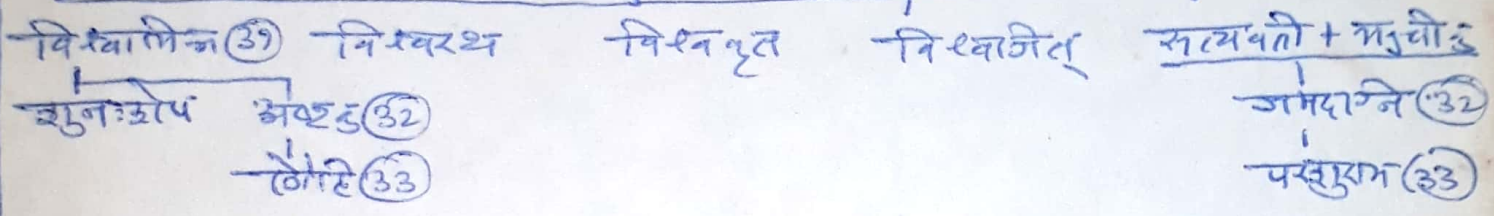 विश्वामित्र (31) विश्वरथ विश्वकृत विश्वाजित् सत्यवती + ऋचीक
शुनःशेप अष्टक (32) जमदाग्नि (32)
लौहि (33) परशुराम (33)